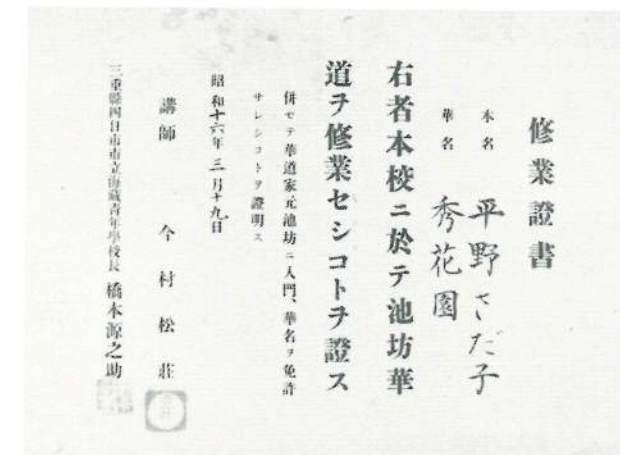 修業證書
本名 平野さだ子
華名 秀花園
右者本校ニ於テ池坊華
道ヲ修業セシコトヲ證ス
併セテ華道家元池坊ニ入門、華名ヲ免許
サレシコトヲ證明ス
昭和十六年三月十九日
講師 今村松莊
三重縣四日市市立海藏青年學校長 橋本源之助